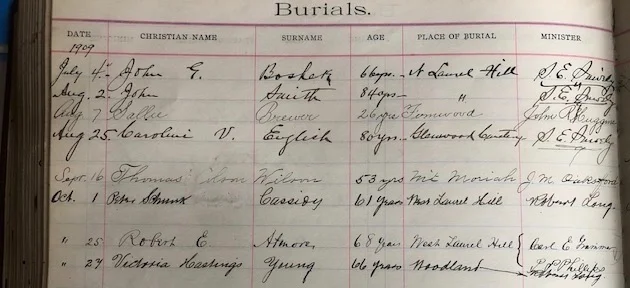 Burials.
DATE CHRISTIAN NAME SURNAME AGE PLACE OF BURIAL MINISTER
1909
July 4. John G. 66 yrs. N Laurel Hill S. E.
Aug. 2. John Smith 84 yrs. " S. E.
Aug. 7 Sallie Brewer 26 yrs Fernwood John R.
Aug 25. Caroline V. English 80 yrs. Glenwood Cemetery S. E.
Sept. 16 Thomas Wilson 53 yrs Mt Moriah J. M.
Oct. 1 Peter Schunk Cassidy 61 years West Laurel Hill Long.
" 25 Robert E. Atmore 68 years West Laurel Hill Carl E.
" 27 Victoria Hastings Young 66 years Woodland Phillips
Long